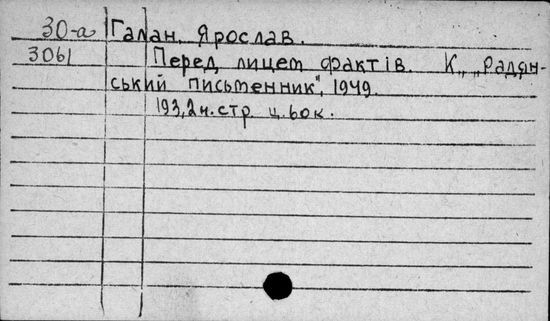 30-а Галан, Ярослав.
3061 Перед лицем фактів. К., „Радян-
ський письменник", 1949.
193,2н.стр. ц.6ок.